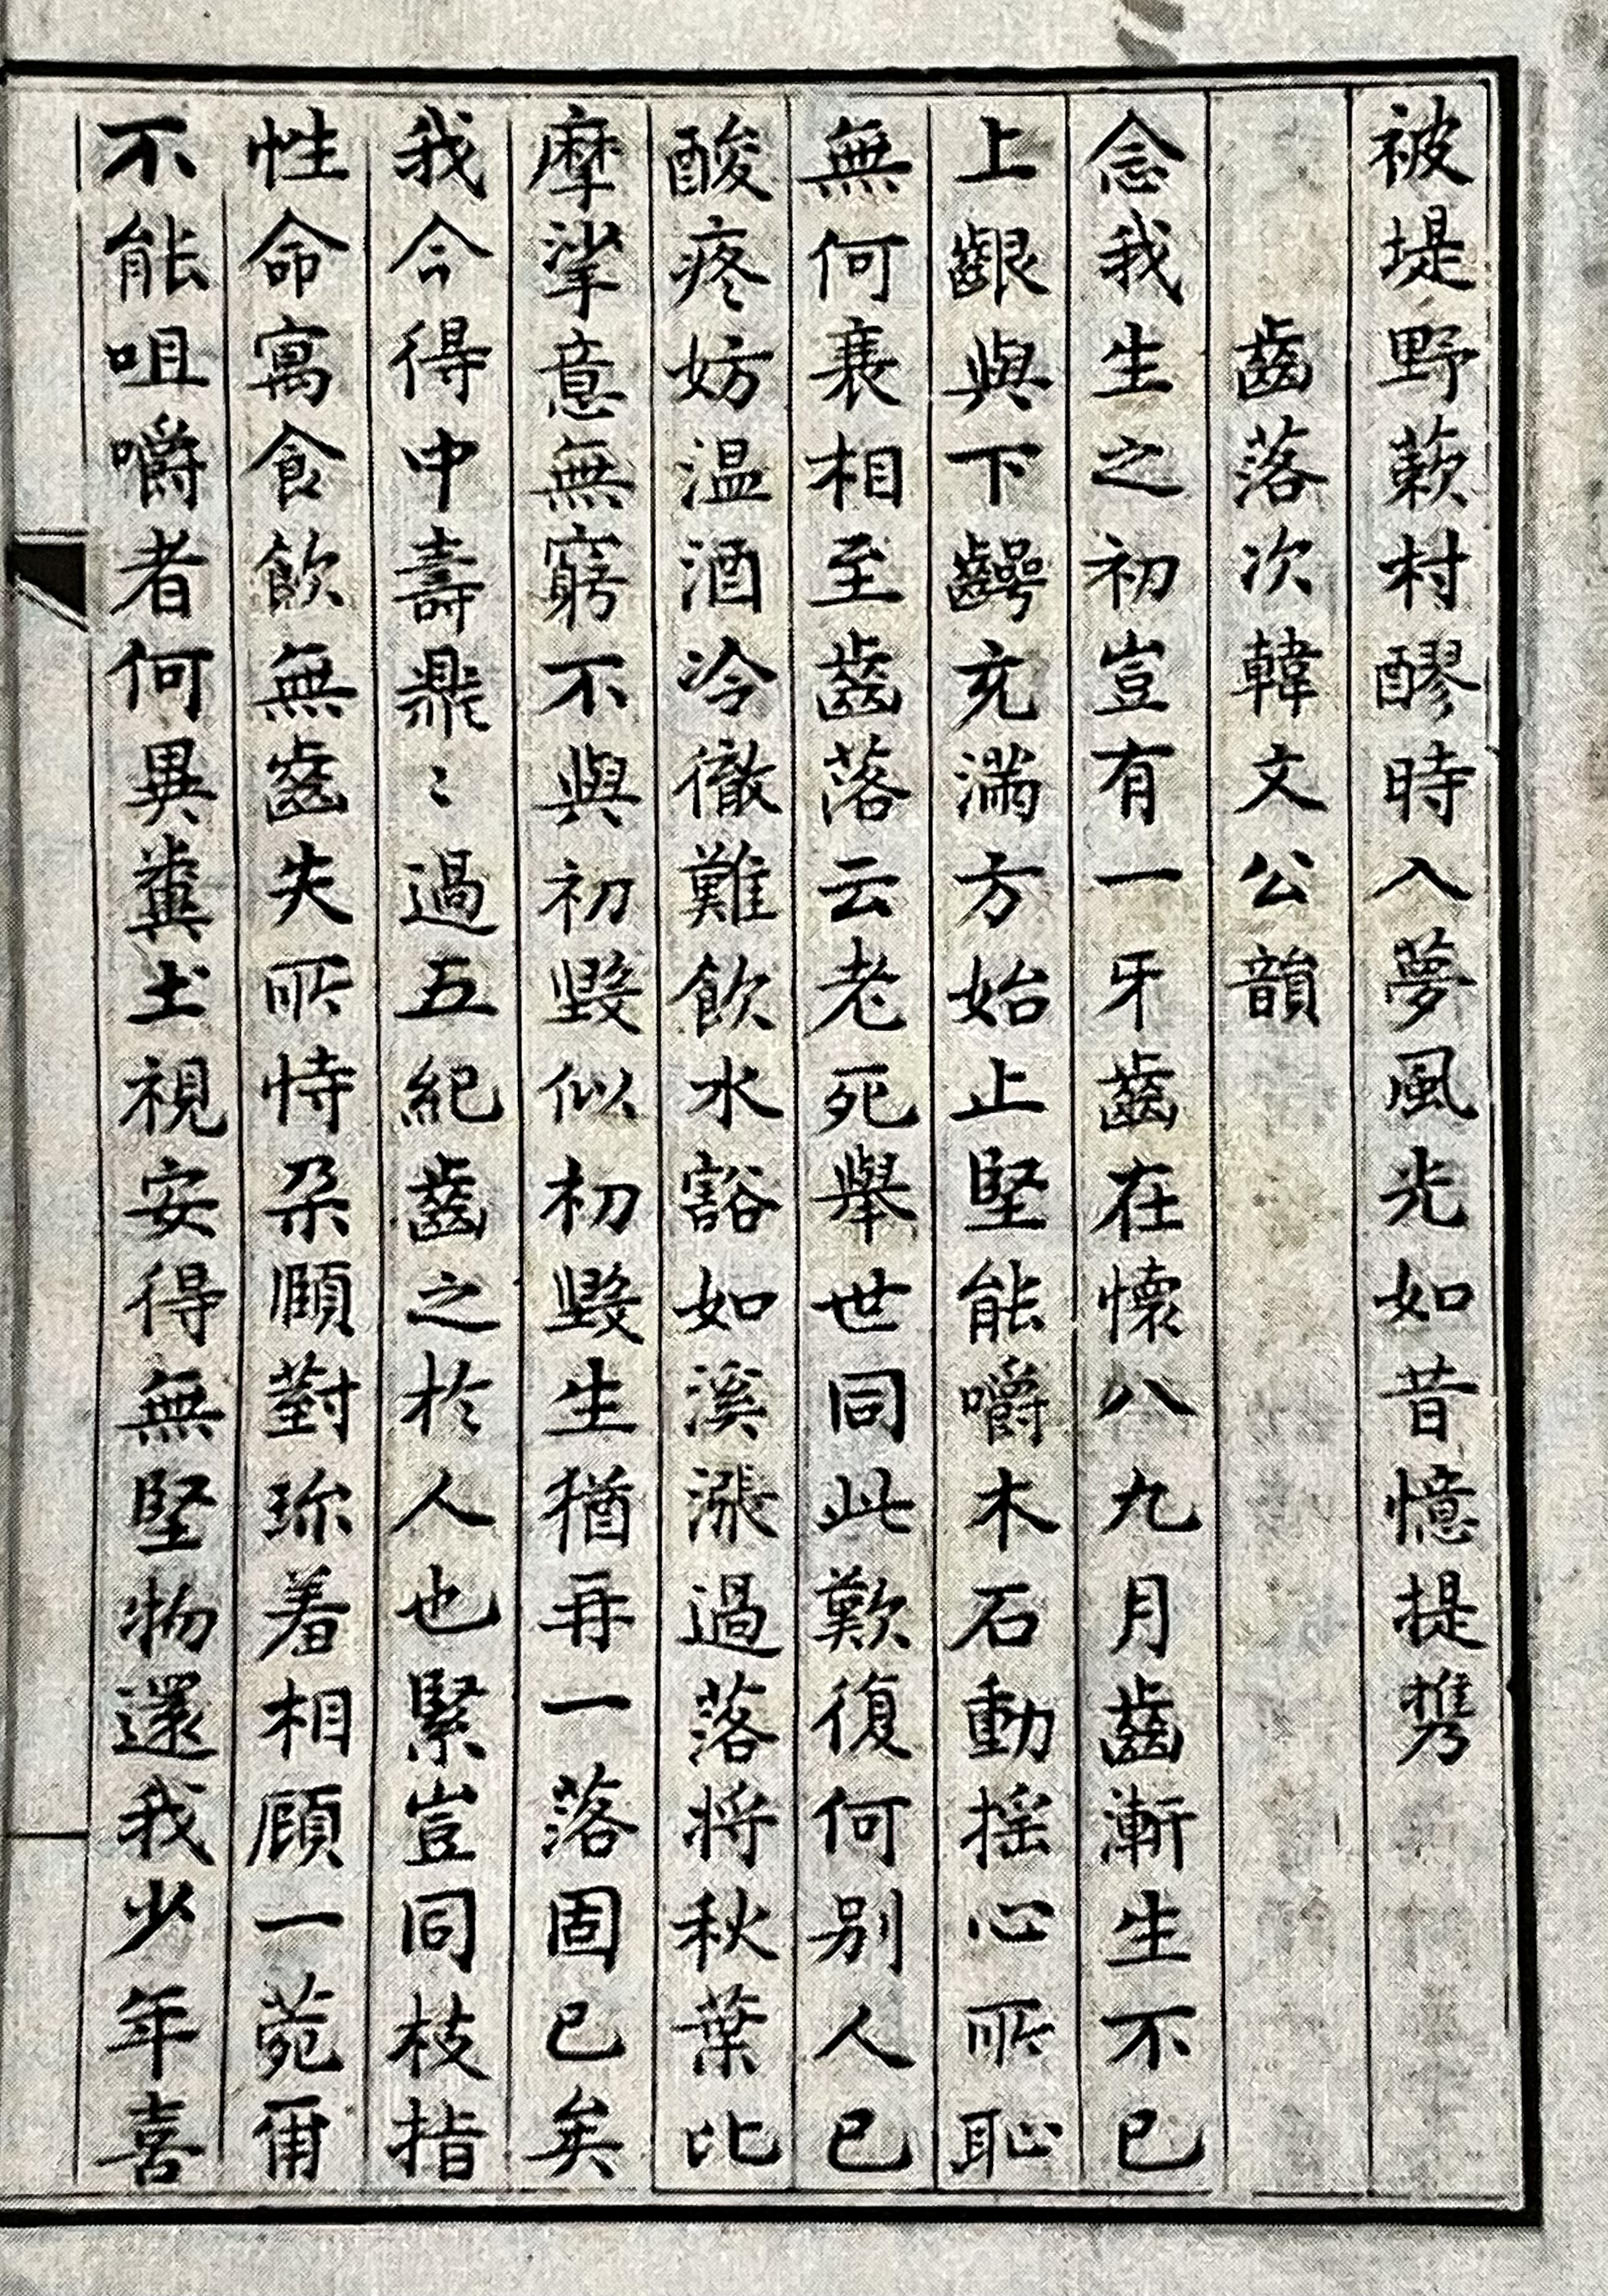 被堤野蔌村醪時入夢風光如昔憶提携
齒落次韓文公韻
念我生之初豈有一牙齒在懷八九月齒漸生不已
上齦與下齶充滿方始止堅能嚼木石動揺心所恥
無何衰相至齒落云老死舉世同此歎復何別人已
酸疼妨温酒冷徹難飲水豁如溪漲過落將秋葉比
摩挲意無窮不與初毀似初毀生猶再一落固已矣
我今得中壽鼎〻過五紀齒之於人也緊豈同枝指
性命寓食飲無齒失所恃朶頤對珎羞相顧一菀爾
不能咀嚼者何異糞土視安得無堅物還我少年喜